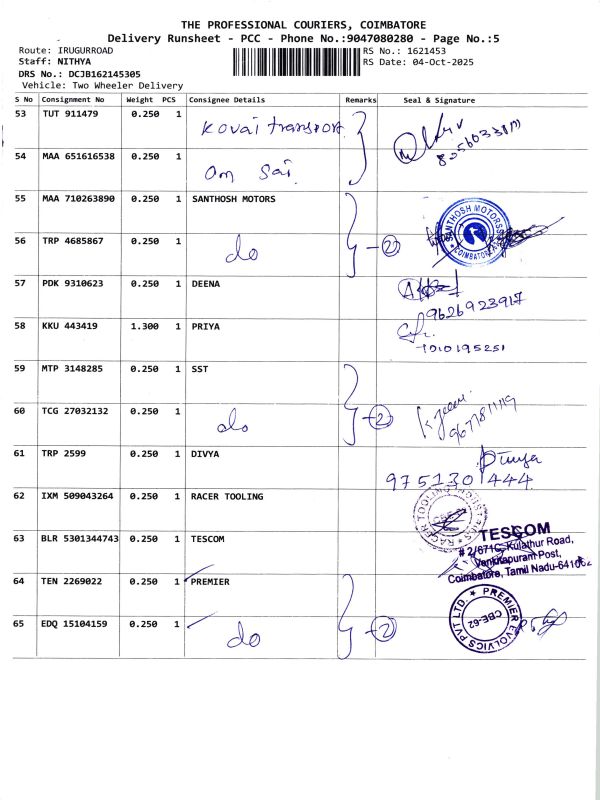 THE PROFESSIONAL COURIERS, COIMBATORE
Delivery Runsheet - PCC - Phone No.:9047080280 - Page No.:5
Route: IRUGURROAD
RS No.: 1621453
Staff: NITHYA
RS Date: 04-Oct-2025
DRS No.: DCJB162145305
Vehicle: Two Wheeler Delivery
S No Consignment No Weight PCS Consignee Details Remarks Seal & Signature
53 TUT 911479 0.250 1 Kovai transport
54 MAA 651616538 0.250 1 Om Sai
55 MAA 710263890 0.250 1 SANTHOSH MOTORS
SANTHOSH MOTORS
COIMBATORE
56 TRP 4685867 0.250 1 do 2
57 PDK 9310623 0.250 1 DEENA
9626923917
58 KKU 443419 1.300 1 PRIYA
59 MTP 3148285 0.250 1 SST
60 TCG 27032132 0.250 1 do 2
61 TRP 2599 0.250 1 DIVYA
Divya
9751301444
62 IXM 509043264 0.250 1 RACER TOOLING
RACER TOOLING INDUSTRIES
63 BLR 5301344743 0.250 1 TESCOM
TESCOM
# 2/671C, Kulathur Road,
Venkitapuram Post,
Coimbatore, Tamil Nadu-641062
64 TEN 2269022 0.250 1 PREMIER
PREMIER EVOLVICS PVT LTD.
CBE-62
65 EDQ 15104159 0.250 1 do 2